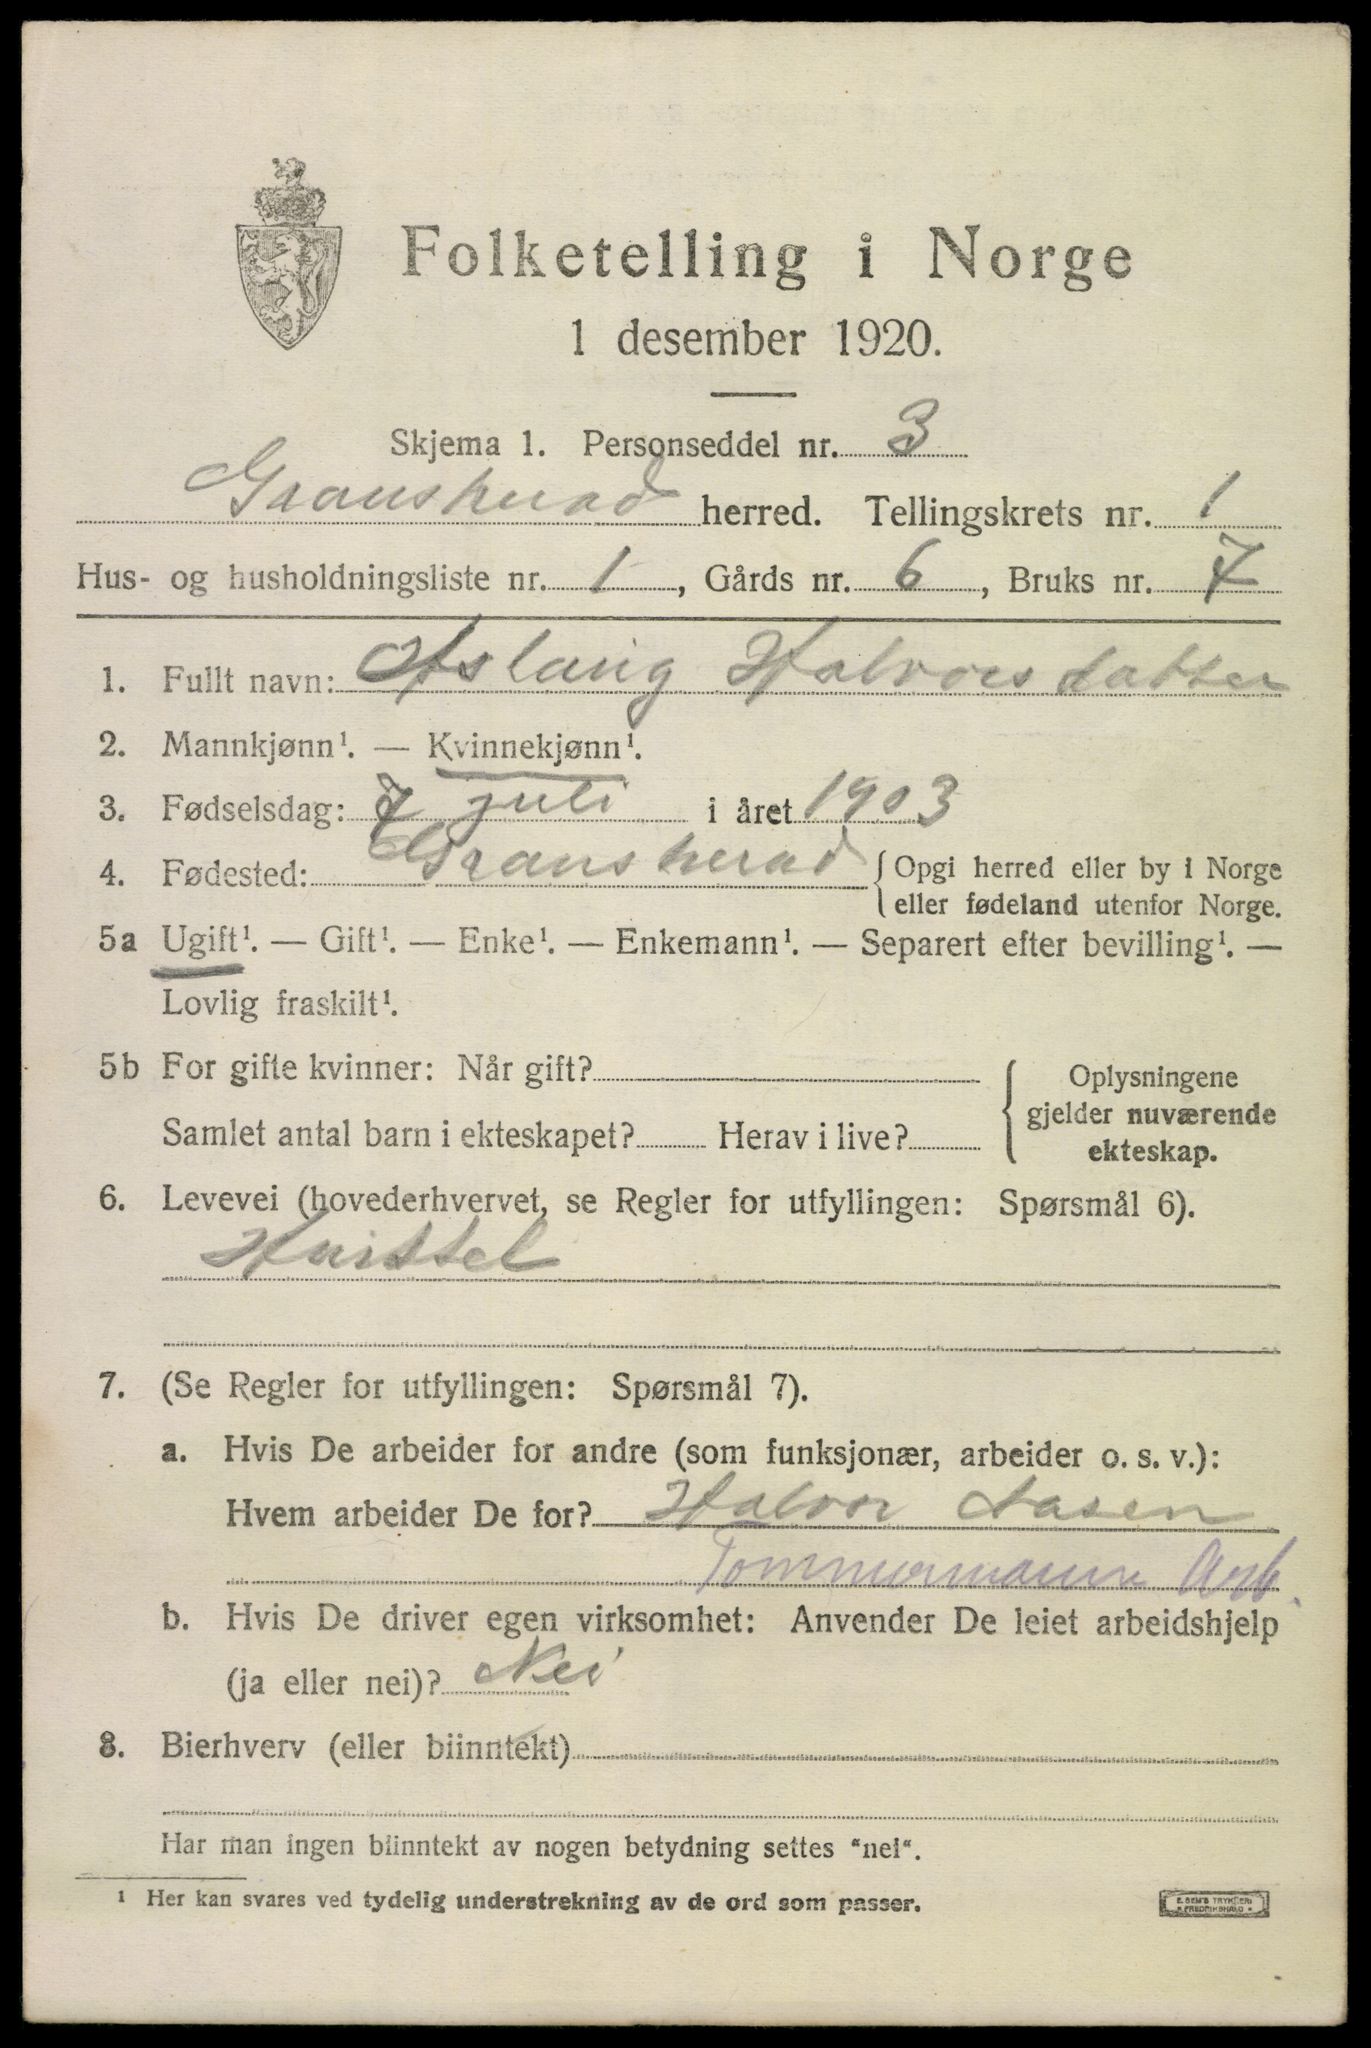 Folketelling i Norge
1 desember 1920.
Skjema 1. Personseddel nr. 3
Gransherad herred. Tellingskrets nr. 1
Hus- og husholdningsliste nr. 1, Gårds nr. 6, Bruks nr. 7
1. Fullt navn: Aslaug Halvorsdatter
2. Mannkjønn¹. — Kvinnekjønn¹.
3. Fødselsdag: 7 juli i året 1903
4. Fødested: Gransherad { Opgi herred eller by i Norge
eller fødeland utenfor Norge.
5a Ugift¹. — Gift¹. — Enke¹. — Enkemann¹. — Separert efter bevilling¹. —
Lovlig fraskilt¹.
5b For gifte kvinner: Når gift?
Samlet antal barn i ekteskapet? Herav i live?
{ Oplysningene
gjelder nuværende
ekteskap.
6. Levevei (hovederhvervet, se Regler for utfyllingen: Spørsmål 6).
7. (Se Regler for utfyllingen: Spørsmål 7).
a. Hvis De arbeider for andre (som funksjonær, arbeider o. s. v.):
Hvem arbeider De for? Halvor Aasen
Tømmermann Arb.
b. Hvis De driver egen virksomhet: Anvender De leiet arbeidshjelp
(ja eller nei)? Nei
8. Bierhverv (eller biinntekt)
Har man ingen biinntekt av nogen betydning settes "nei".
¹ Her kan svares ved tydelig understrekning av de ord som passer.
E. SEM'S TRYKKERI
FREDRIKSHALD